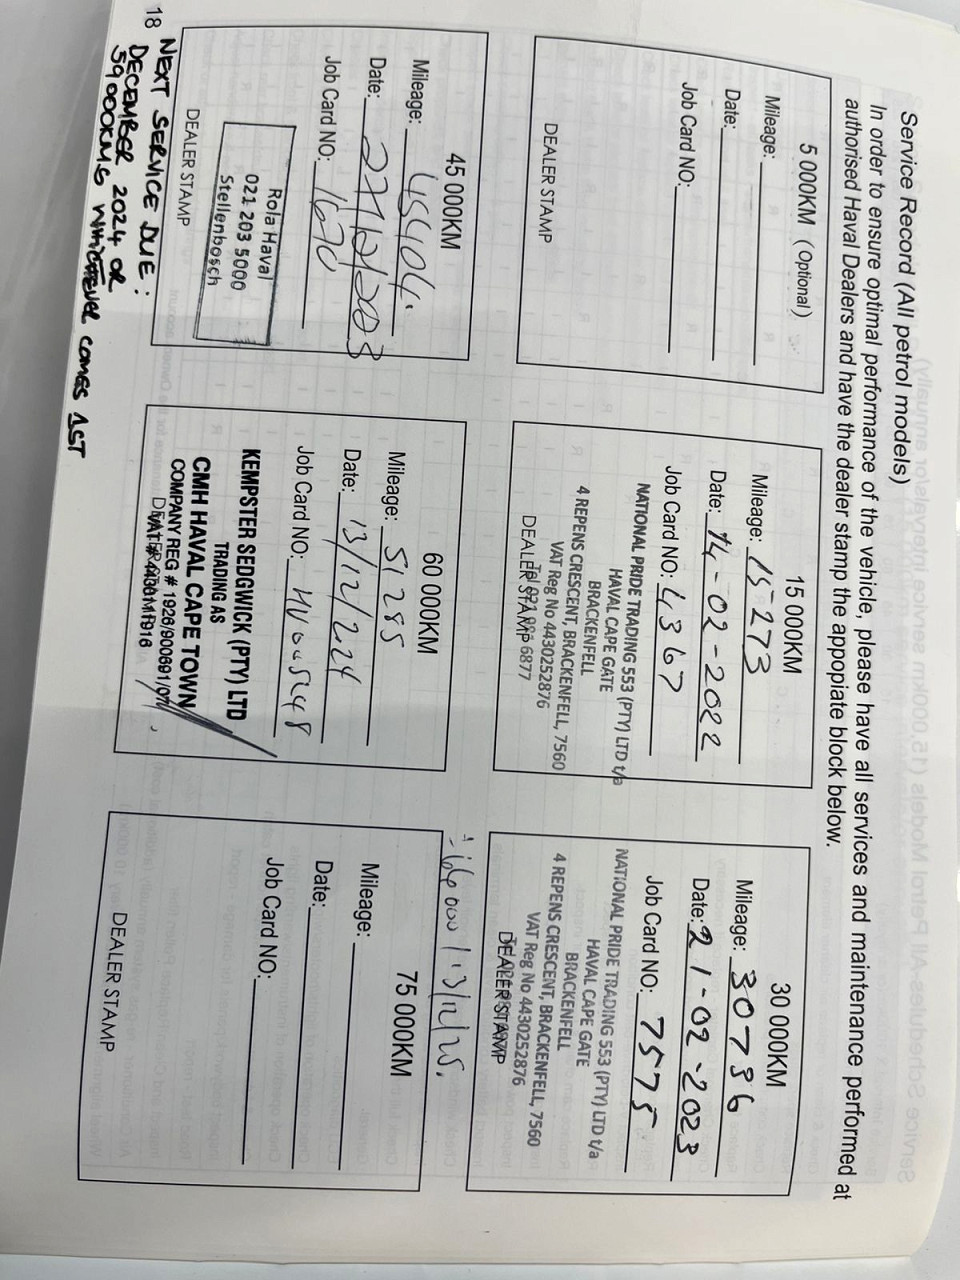 Service Record (All petrol models)
In order to ensure optimal performance of the vehicle, please have all services and maintenance performed at
authorised Haval Dealers and have the dealer stamp the appopiate block below.
5 000KM (Optional)
Mileage:
Date:
Job Card NO:
DEALER STAMP
15 000KM
Mileage: 15-273
Date: 14-02-2022
Job Card NO: 4367
NATIONAL PRIDE TRADING 553 (PTY) LTD t/a
HAVAL CAPE GATE
BRACKENFELL
4 REPENS CRESCENT, BRACKENFELL, 7560
VAT Reg No 4430252876
DEALER STAMP 6877
30 000KM
Mileage: 30786
Date: 21-02-2023
Job Card NO: 7575
NATIONAL PRIDE TRADING 553 (PTY) LTD t/a
HAVAL CAPE GATE
BRACKENFELL
4 REPENS CRESCENT, BRACKENFELL, 7560
VAT Reg No 4430252876
DEALER STAMP
45 000KM
Mileage: 45404.
Date:
Job Card NO: 1670
Rola Haval
021 203 5000
Stellenbosch
DEALER STAMP
60 000KM
Mileage: 51285
Date: 13/12/2024
Job Card NO: HV005248
KEMPSTER SEDGWICK (PTY) LTD
TRADING AS
CMH HAVAL CAPE TOWN
COMPANY REG # 1926/900691/07
66 000 / 13/12/25.
75 000KM
Mileage:
Date:
Job Card NO:
DEALER STAMP
18
NEXT SERVICE DUE:
DECEMBER 2024 OR
59 000KMS WHICHEVER COMES 1ST